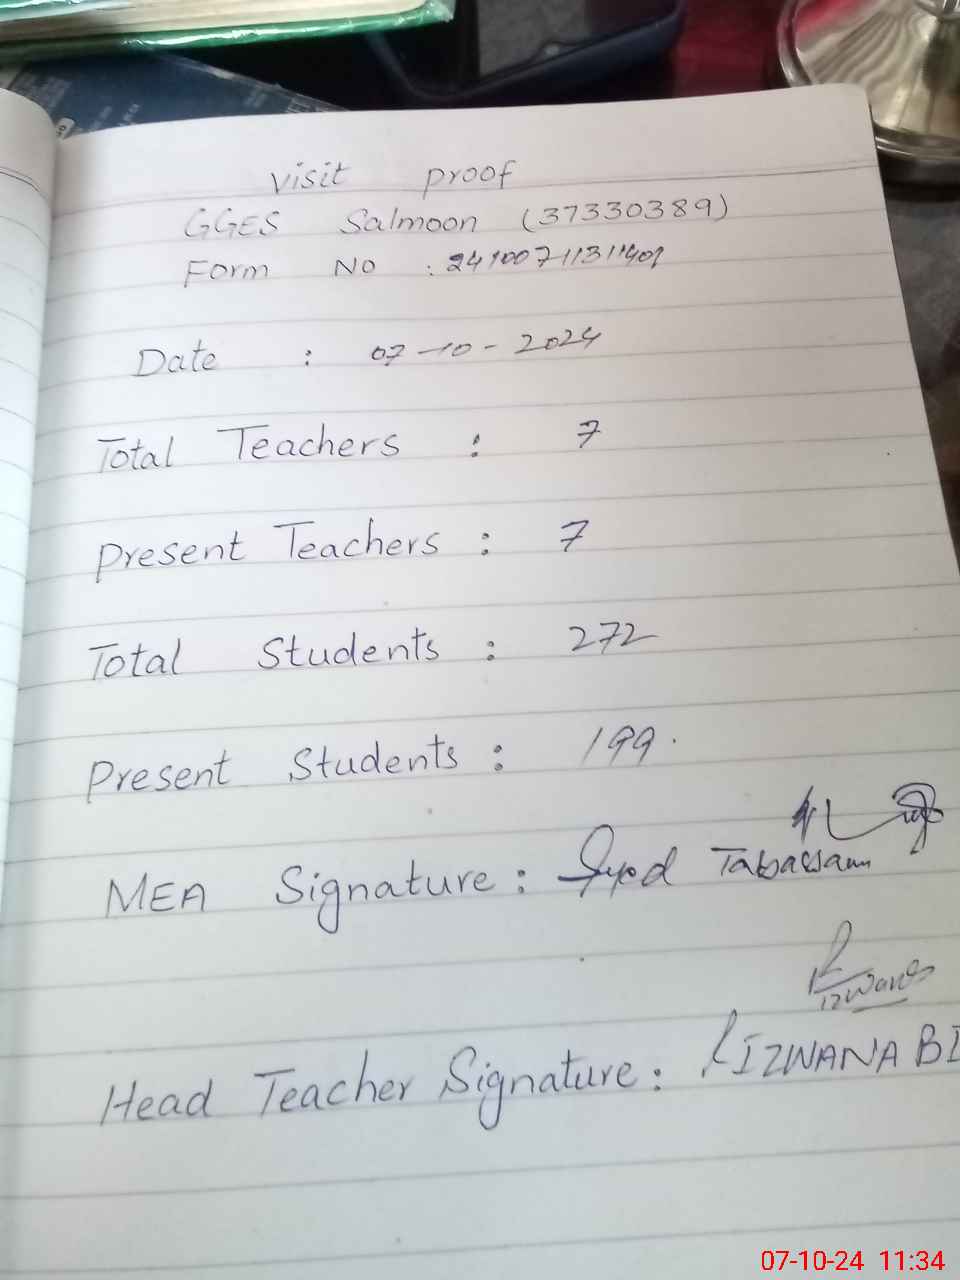 visit proof
GGES Salmoon (37330389)
Form No : 24100711311401
Date : 07-10-2024
Total Teachers : 7
Present Teachers : 7
Total Students : 272
Present Students : 199.
MEA Signature : Syed Tabassam
Rizwana
Head Teacher Signature : RIZWANA BI
07-10-24 11:34